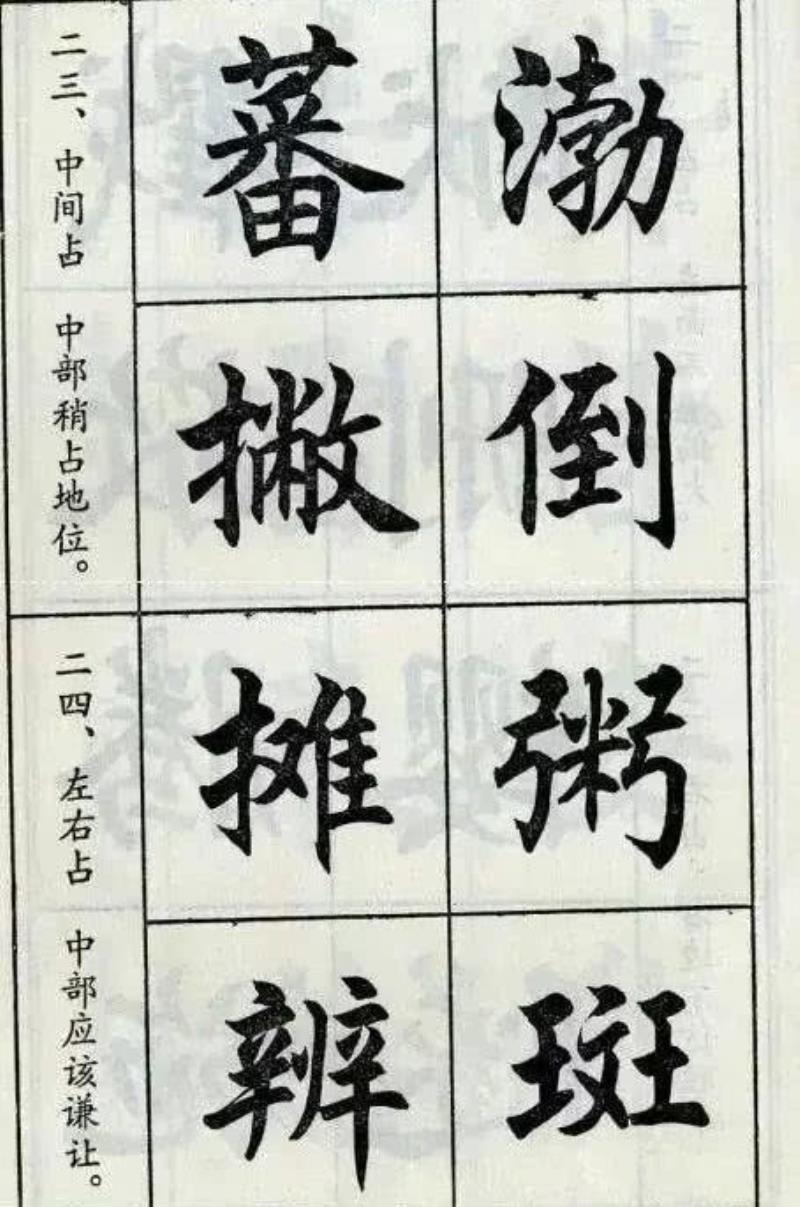 二三、中间占
中部稍占地位。
蕃 渤
撇 倒
二四、左右占
中部应该谦让。
摊 粥
辨 斑